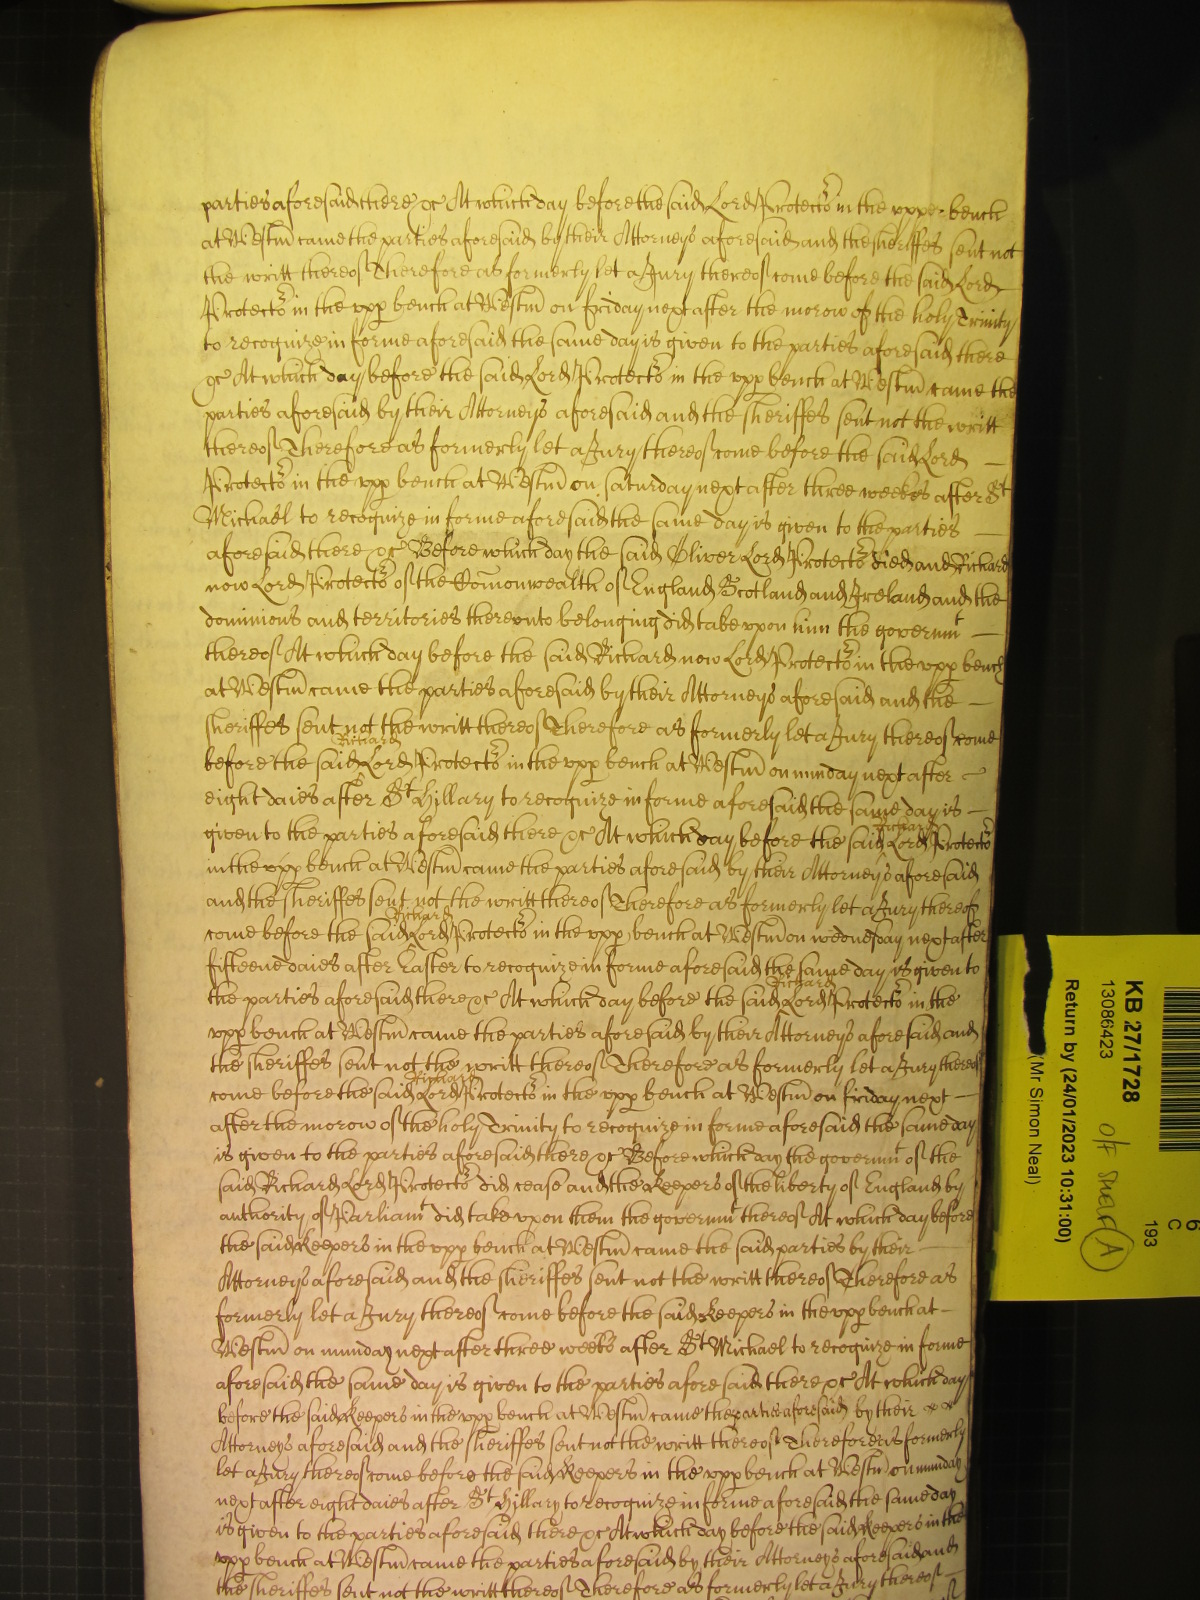 parties aforesaid there &c At which day before the said Lord Protector in the upper bench
at Westm came the parties aforesaid by their Attorneys aforesaid and the sheriffes sent not
the writt thereof Therefore as formerly let a Jury thereof come before the said Lord
Protector in the upp bench at Westm on friday next after the morow of the holy Trinity
to recognize in forme aforesaid the same day is given to the parties aforesaid there
&c At which day before the said Lord Protector in the upp bench at Westm came the
parties aforesaid by their Attorneys aforesaid and the sheriffes sent not the writt
thereof Therefore as formerly let a Jury thereof come before the said Lord
Protector in the upp bench at Westm on saturday next after three weekes after St
Michael to recognize in forme aforesaid the same day is given to the parties
aforesaid there &c Before which day the said Oliver Lord Protector died and Richard
now Lord Protector of the Comonwealth of England Scotland and Ireland and the
dominions and territories thereunto belonging did take upon him the governmt
thereof At which day before the said Richard now Lord Protector in the upp bench
at Westm came the parties aforesaid by their Attorneys aforesaid and the
sheriffes sent not the writt thereof Therefore as formerly let a Jury thereof come
before the said Richard Lord Protector in the upp bench at Westm on munday next after
eight daies after St Hillary to recognize in forme aforesaid the same day is
given to the parties aforesaid there &c At which day before the said Richard Lord Protector
in the upp bench at Westm came the parties aforesaid by their Attorneys aforesaid
and the sheriffes sent not the writt thereof Therefore as formerly let a Jury thereof
come before the said Richard Lord Protector in the upp bench at Westm on wednesday next after
fifteene daies after Easter to recognize in forme aforesaid the same day is given to
the parties aforesaid there &c At which day before the said Richard Lord Protector in the
upp bench at Westm came the parties aforesaid by their Attorneys aforesaid and
the sheriffes sent not the writt thereof Therefore as formerly let a Jury thereof
come before the said Richard Lord Protector in the upp bench at Westm on friday next
after the morow of the holy Trinity to recognize in forme aforesaid the same day
is given to the parties aforesaid there &c Before which day the governmt of the
said Richard Lord Protector did cease and the Keepers of the liberty of England by
authority of Parliamt did take upon them the governmt thereof At which day before
the said Keepers in the upp bench at Westm came the said parties by their
Attorneys aforesaid and the sheriffes sent not the writt thereof Therefore as
formerly let a Jury thereof come before the said Keepers in the upp bench at
Westm on munday next after three weeks after St Michael to recognize in forme
aforesaid the same day is given to the parties aforesaid there &c At which day
before the said Keepers in the upp bench at Westm came the parties aforesaid by their
Attorneys aforesaid and the sheriffes sent not the writt thereof Therefore as formerly
let a Jury thereof come before the said Keepers in the upp bench at Westm on munday
next after eight daies after St Hillary to recognize in forme aforesaid the same day
is given to the parties aforesaid there &c At which day before the said Keepers in the
upp bench at Westm came the parties aforesaid by their Attorneys aforesaid and
the sheriffes sent not the writt thereof Therefore as formerly let a Jury thereof
KB 27/1728
13086423
Return by (24/01/2023 10:31:00)
(Mr Simon Neal)
off shelf
A
193
C
6